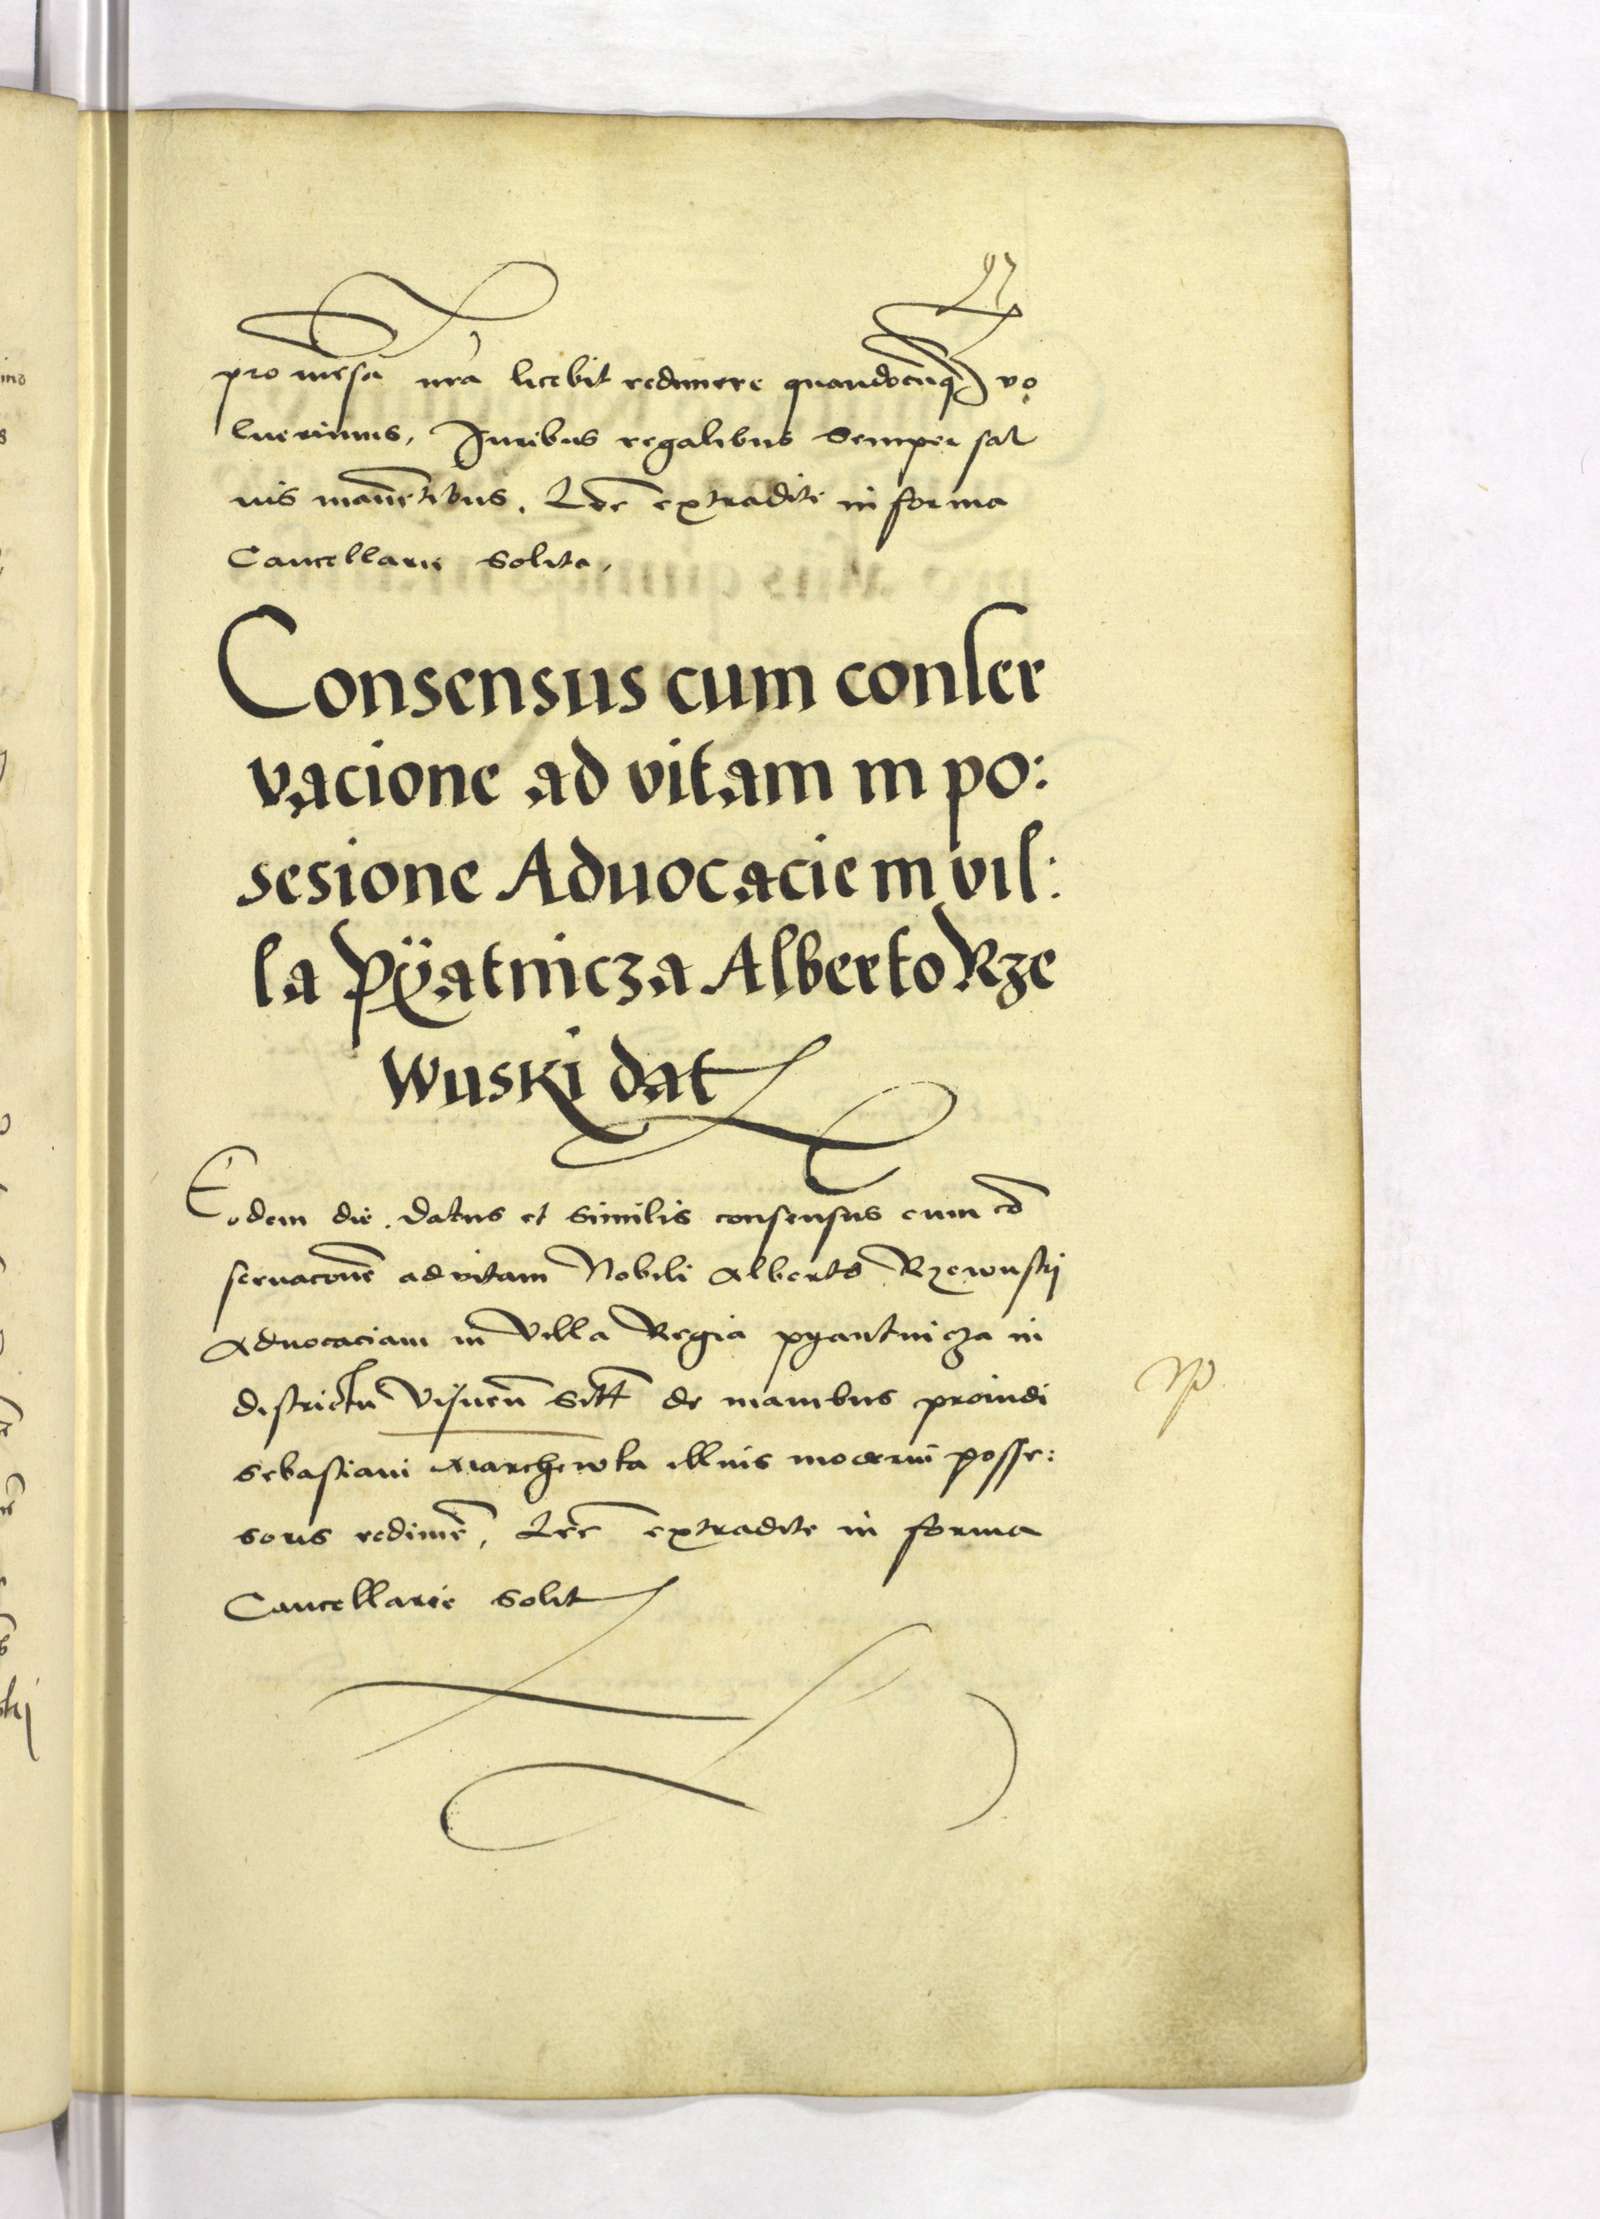 97
pro mesa nr̃a licebit redimere quandocũq vo
luerimus, Iuribus regalibus semper sal
uis manẽtibus. Lr̃e extradite in forma
Cancellarie solita,
Consensus cum conser
vacione ad vitam in po:
sesione Aduocacie in vil:
la Pÿatnicza Alberto Rze
wuski dat
Eodem die datus et similis consensus cum cõ
seruacõne ad vitam Nobili Alberto Rzewuskij
Aduocaciam in Villa Regia pyantnicza in
districtu Visneñ sitã de manibus prouidi
sebastiani Marchewka illius moderni posse:
soris redimẽ, Lr̃e extradite in forma
Cancellarie solit